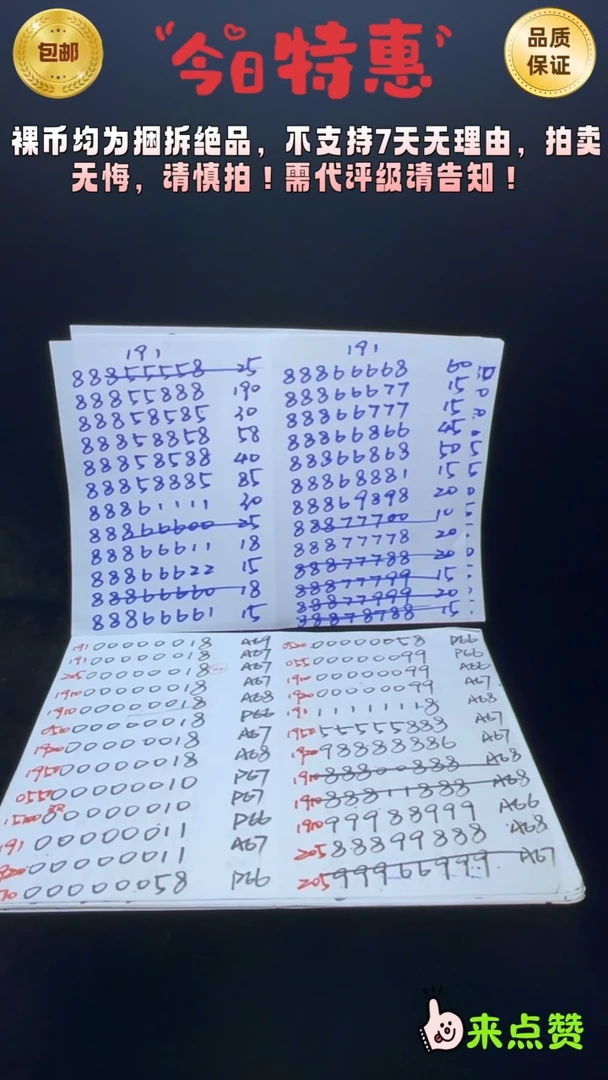 包邮
今日特惠
品质
保证
裸币均为捆拆绝品，不支持7天无理由，拍卖
无悔，请慎拍！需代评级请告知！
191
88855558 25
88855888 190
88858585 30
88858858 58
88858588 40
88858885 85
88861111 30
88866600 25
88866611 18
88866622 15
88866660 18
88866661 15
191
88866668 60
88866677 15
88866777 15
88866866 45
88866868 50
88868881 15
88869898 20
88877700 10
88877778 20
88877788 20
88877799 15
88877999 20
88878788 15
191 00000018 A69
191 00000018 A67
205 00000018 A67
1910 00000018 A67
1910 00000018 A68
00000018 P66
1900 00000018 A67
1950 00000018 A68
0550 00000010 P67
00000010 P67
191 00000011 P66
00000011 A67
00000058 P66
00000058 P66
055 00000099 P66
1910 00000099 A66
1900 00000099 A67
191 11111118 A68
1950 55555888 A67
98888886 A67
1910 88800888 A68
1910 88811888 A68
1910 99988999 A66
205 88899888 A68
205 99966999 A67
来点赞